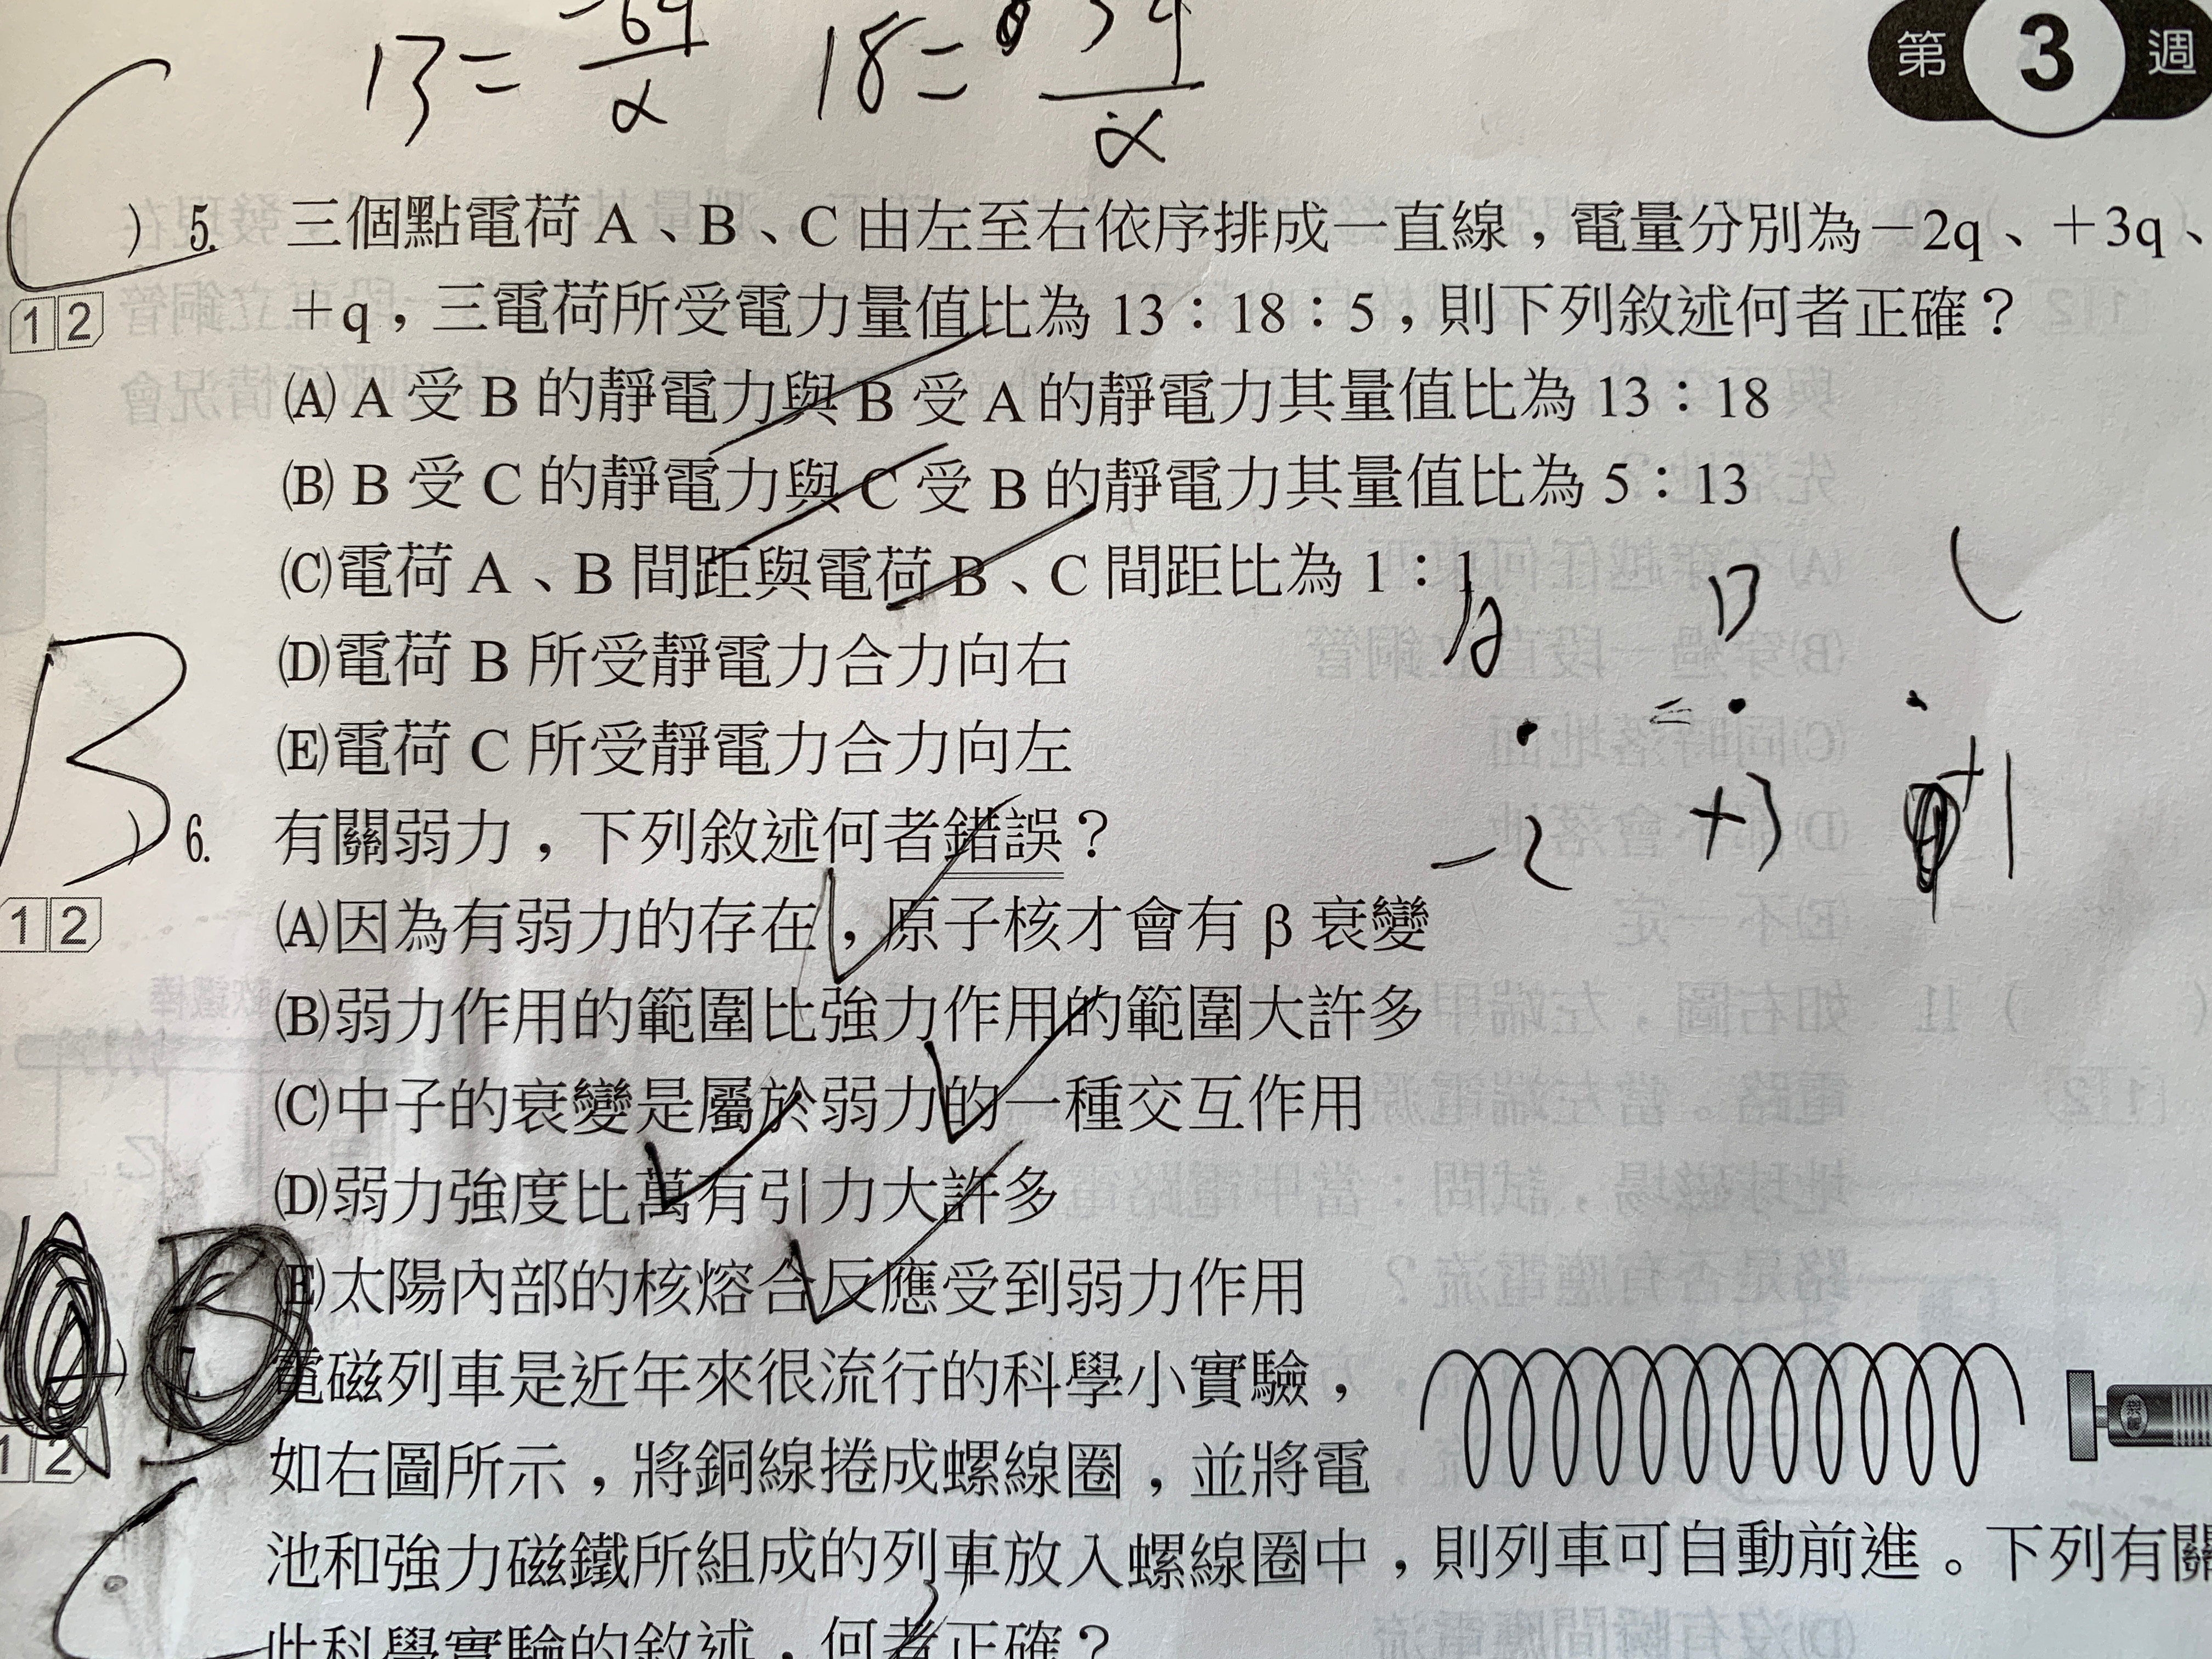 13 = -6q/α 18 = 3q/α
第 3 週
C ) 5. 三個點電荷 A、B、C 由左至右依序排成一直線，電量分別為－2q、＋3q、
1 2 ＋q，三電荷所受電力量值比為 13：18：5，則下列敘述何者正確？
(A) A 受 B 的靜電力與 B 受 A 的靜電力其量值比為 13：18
(B) B 受 C 的靜電力與 C 受 B 的靜電力其量值比為 5：13
(C)電荷 A、B 間距與電荷 B、C 間距比為 1：1
(D)電荷 B 所受靜電力合力向右
(E)電荷 C 所受靜電力合力向左
B C
-2 +3 +1
B ) 6. 有關弱力，下列敘述何者錯誤？
1 2 (A)因為有弱力的存在，原子核才會有 β 衰變
(B)弱力作用的範圍比強力作用的範圍大許多
(C)中子的衰變是屬於弱力的一種交互作用
(D)弱力強度比萬有引力大許多
(E)太陽內部的核熔合反應受到弱力作用
電磁列車是近年來很流行的科學小實驗，
1 2 如右圖所示，將銅線捲成螺線圈，並將電
池和強力磁鐵所組成的列車放入螺線圈中，則列車可自動前進。下列有關
C 此科學實驗的敘述，何者正確？